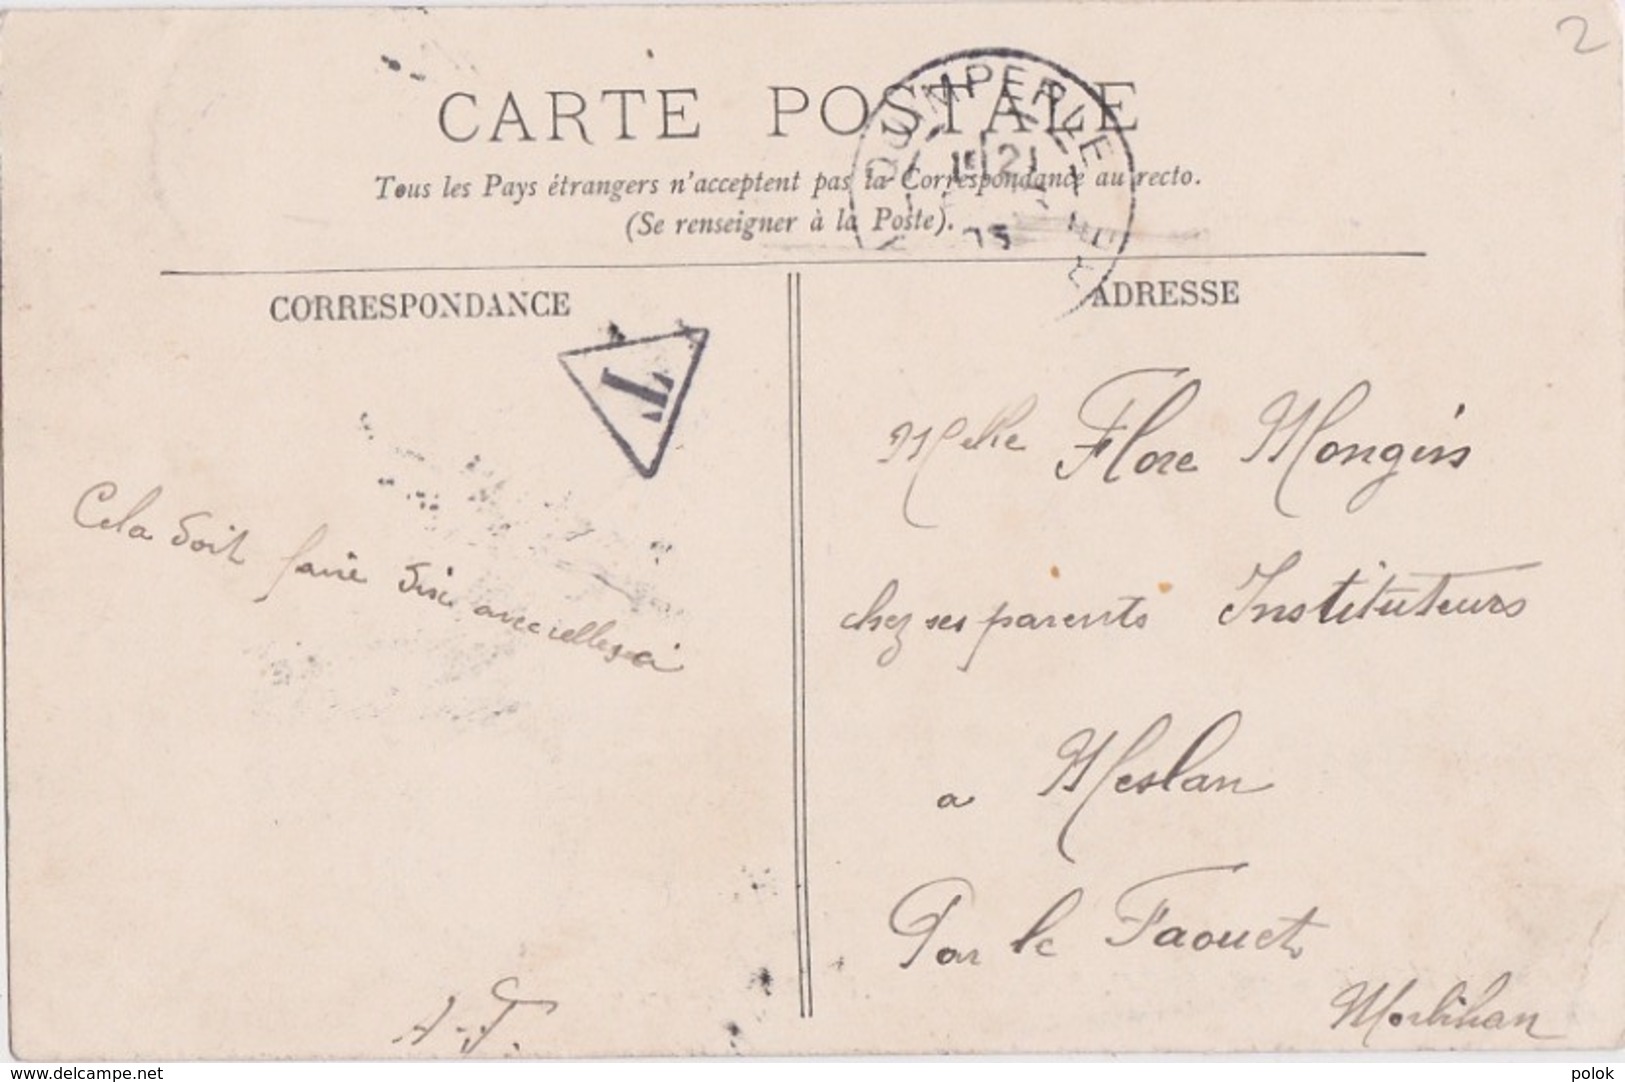 2
CARTE POSTALE
QUIMPERLE
Tous les Pays étrangers n'acceptent pas la Correspondance au recto.
(Se renseigner à la Poste).
CORRESPONDANCE
T
Cela doit faire dix avec celles ci
A-T.
ADRESSE
Melle Flore Mongin
chez ses parents Instituteurs
a Meslan
Par le Faouet
Morbihan
www.delcampe.net
polok